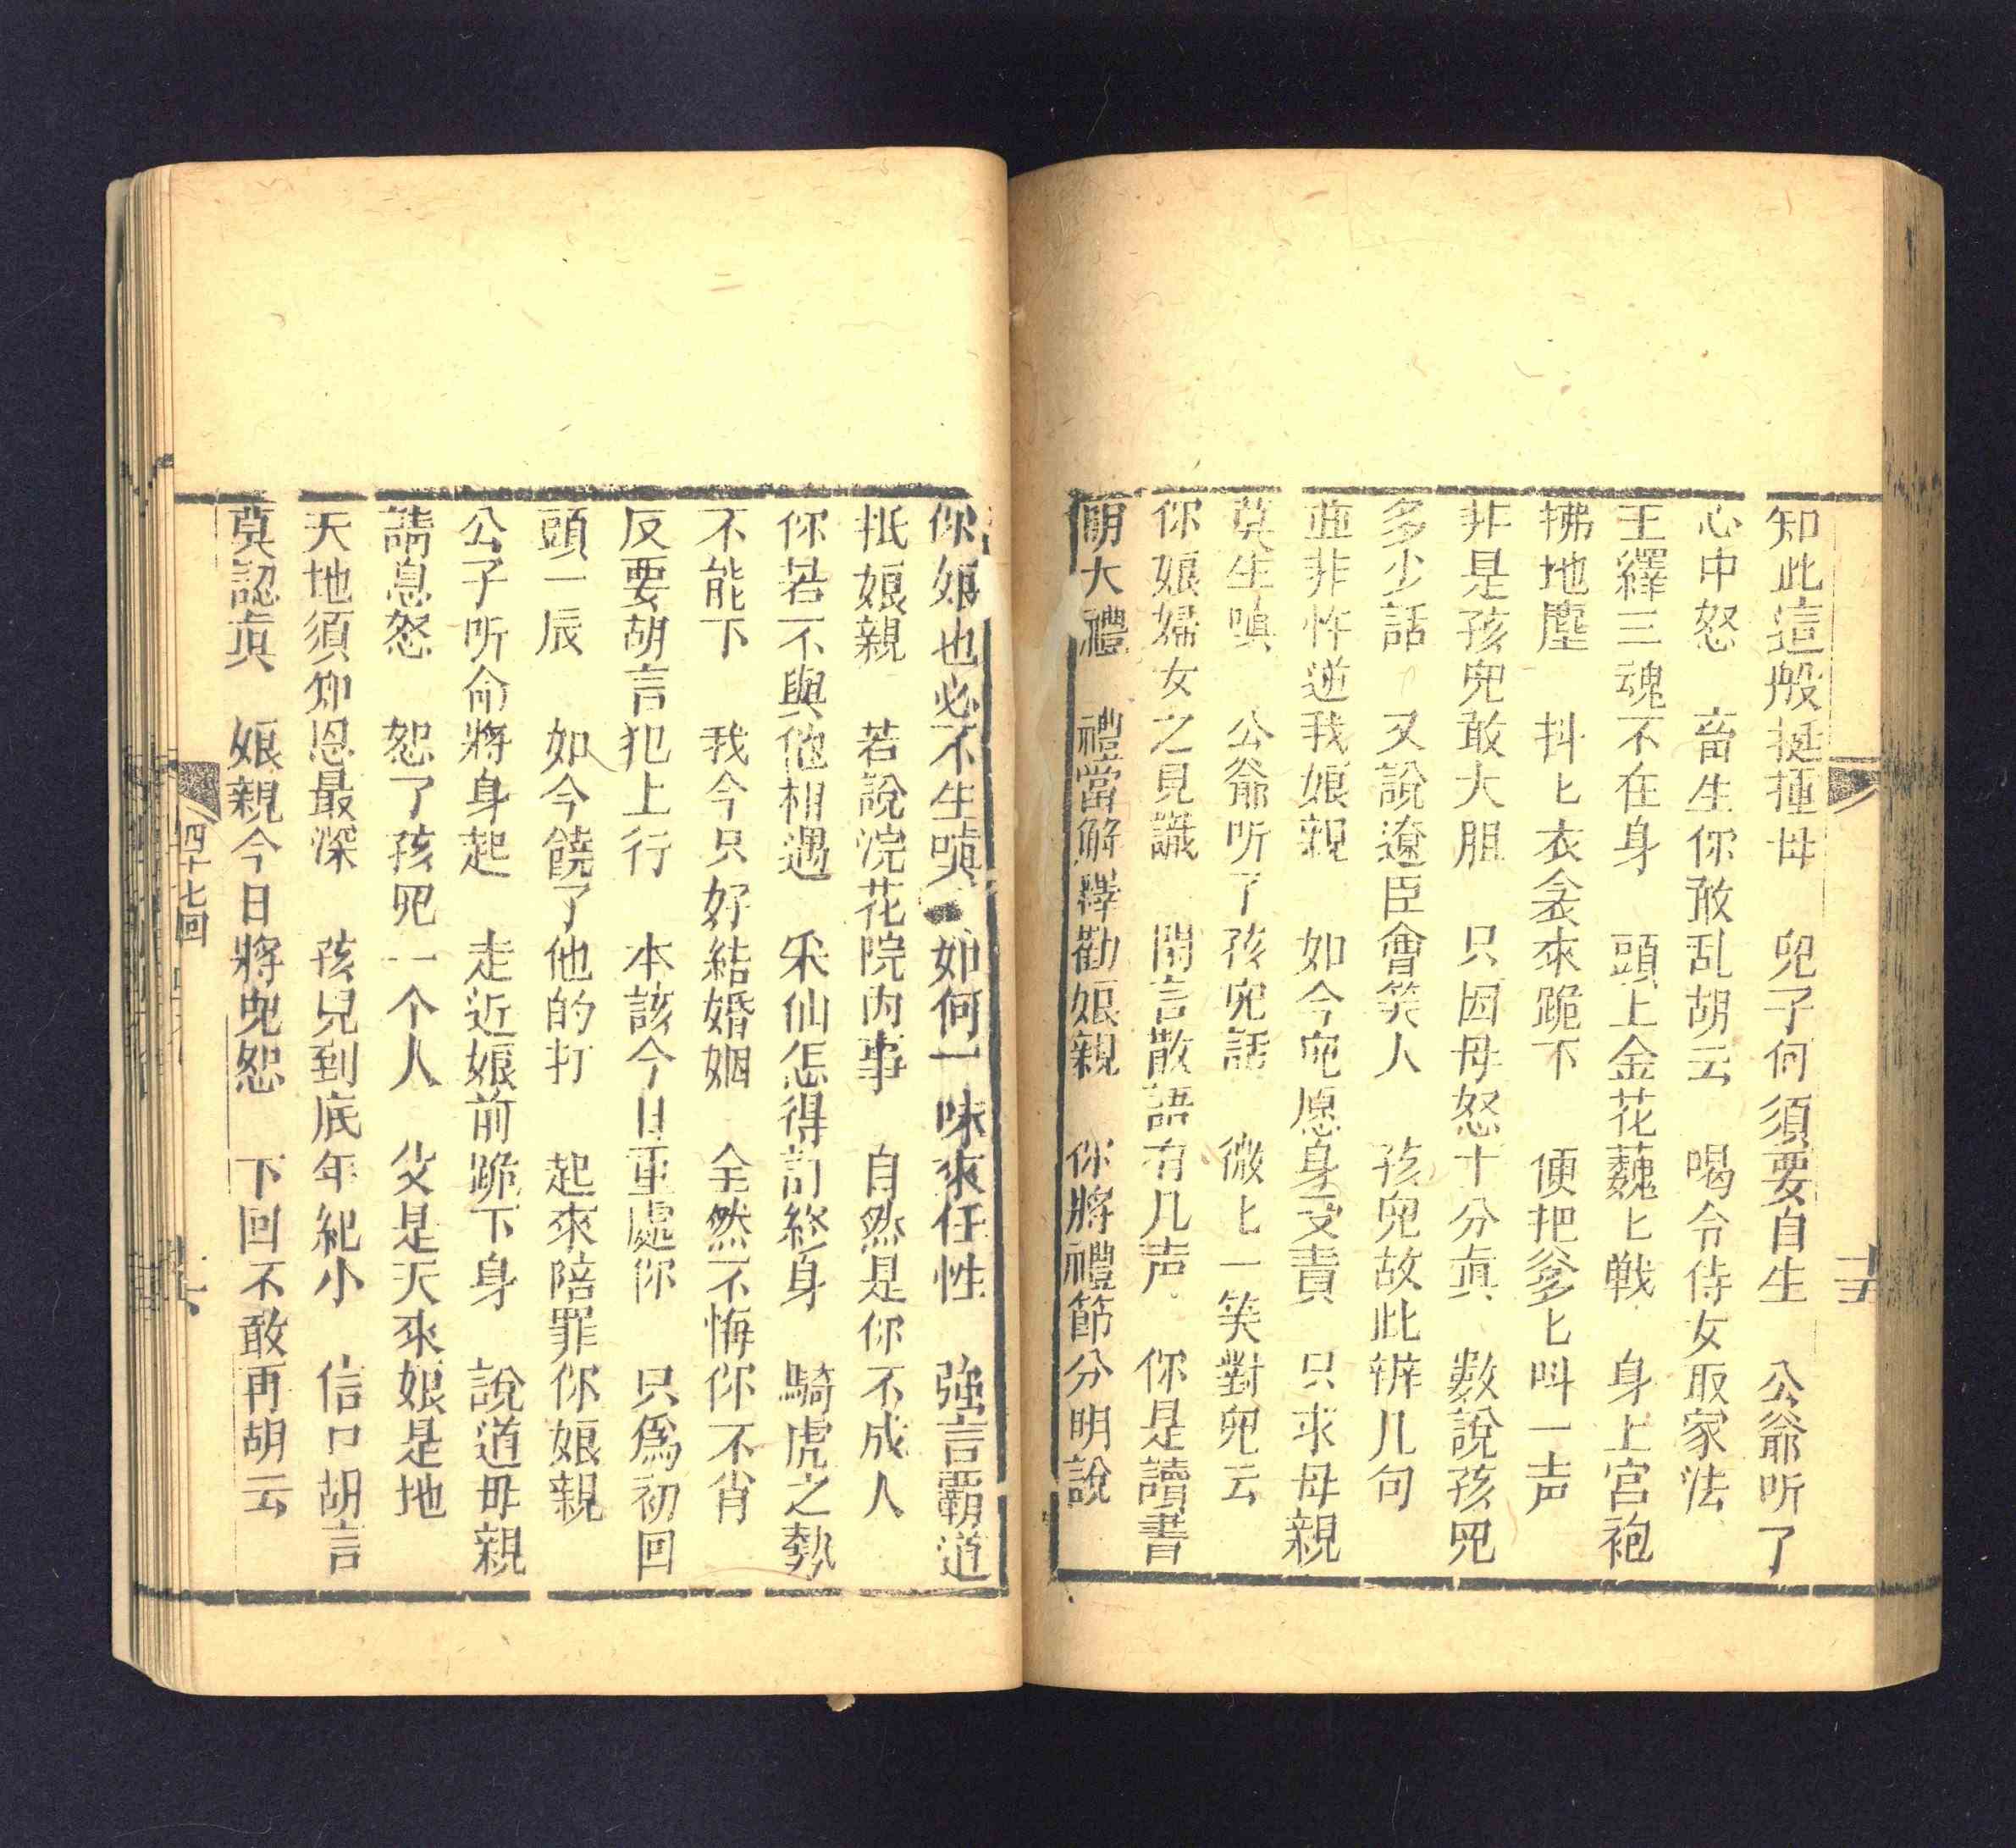 知此這般挺撞母　兒子何須要自生　公爺听了
心中怒　畜生你敢乱胡云　喝令侍女取家法
王繹三魂不在身　頭上金花巍匕戦　身上宮袍
拂地塵　抖匕衣衾來跪下　便把爹匕叫一声
非是孩兒敢大胆　只因母怒十分眞　數說孩兒
多少話　又說遼臣會笑人　孩兒故此辨几句
並非忤逆我娘親　如今兒愿身受責　只求母親
莫生嗔　公爺听了孩兒話　微匕一笑對兒云
你娘婦女之見識　閑言散語有几声　你是讀書
明大禮　禮當解釋勸娘親　你將禮節分明說
十五
你娘也必不生嗔　如何一味來任性　強言霸道
抵娘親　若說浣花院内事　自然是你不成人
你若不與他相遇　采仙怎得訂終身　騎虎之勢
不能下　我今只好結婚姻　全然不悔你不肖
反要胡言犯上行　本該今日重處你　只爲初回
頭一辰　如今饒了他的打　起來陪罪你娘親
公子听命將身起　走近娘前跪下身　說道母親
請息怒　恕了孩兒一个人　父是天來娘是地
天地須知恩最深　孩兒到底年紀小　信口胡言
莫認眞　娘親今日將兒恕　下回不敢再胡云
四十七回